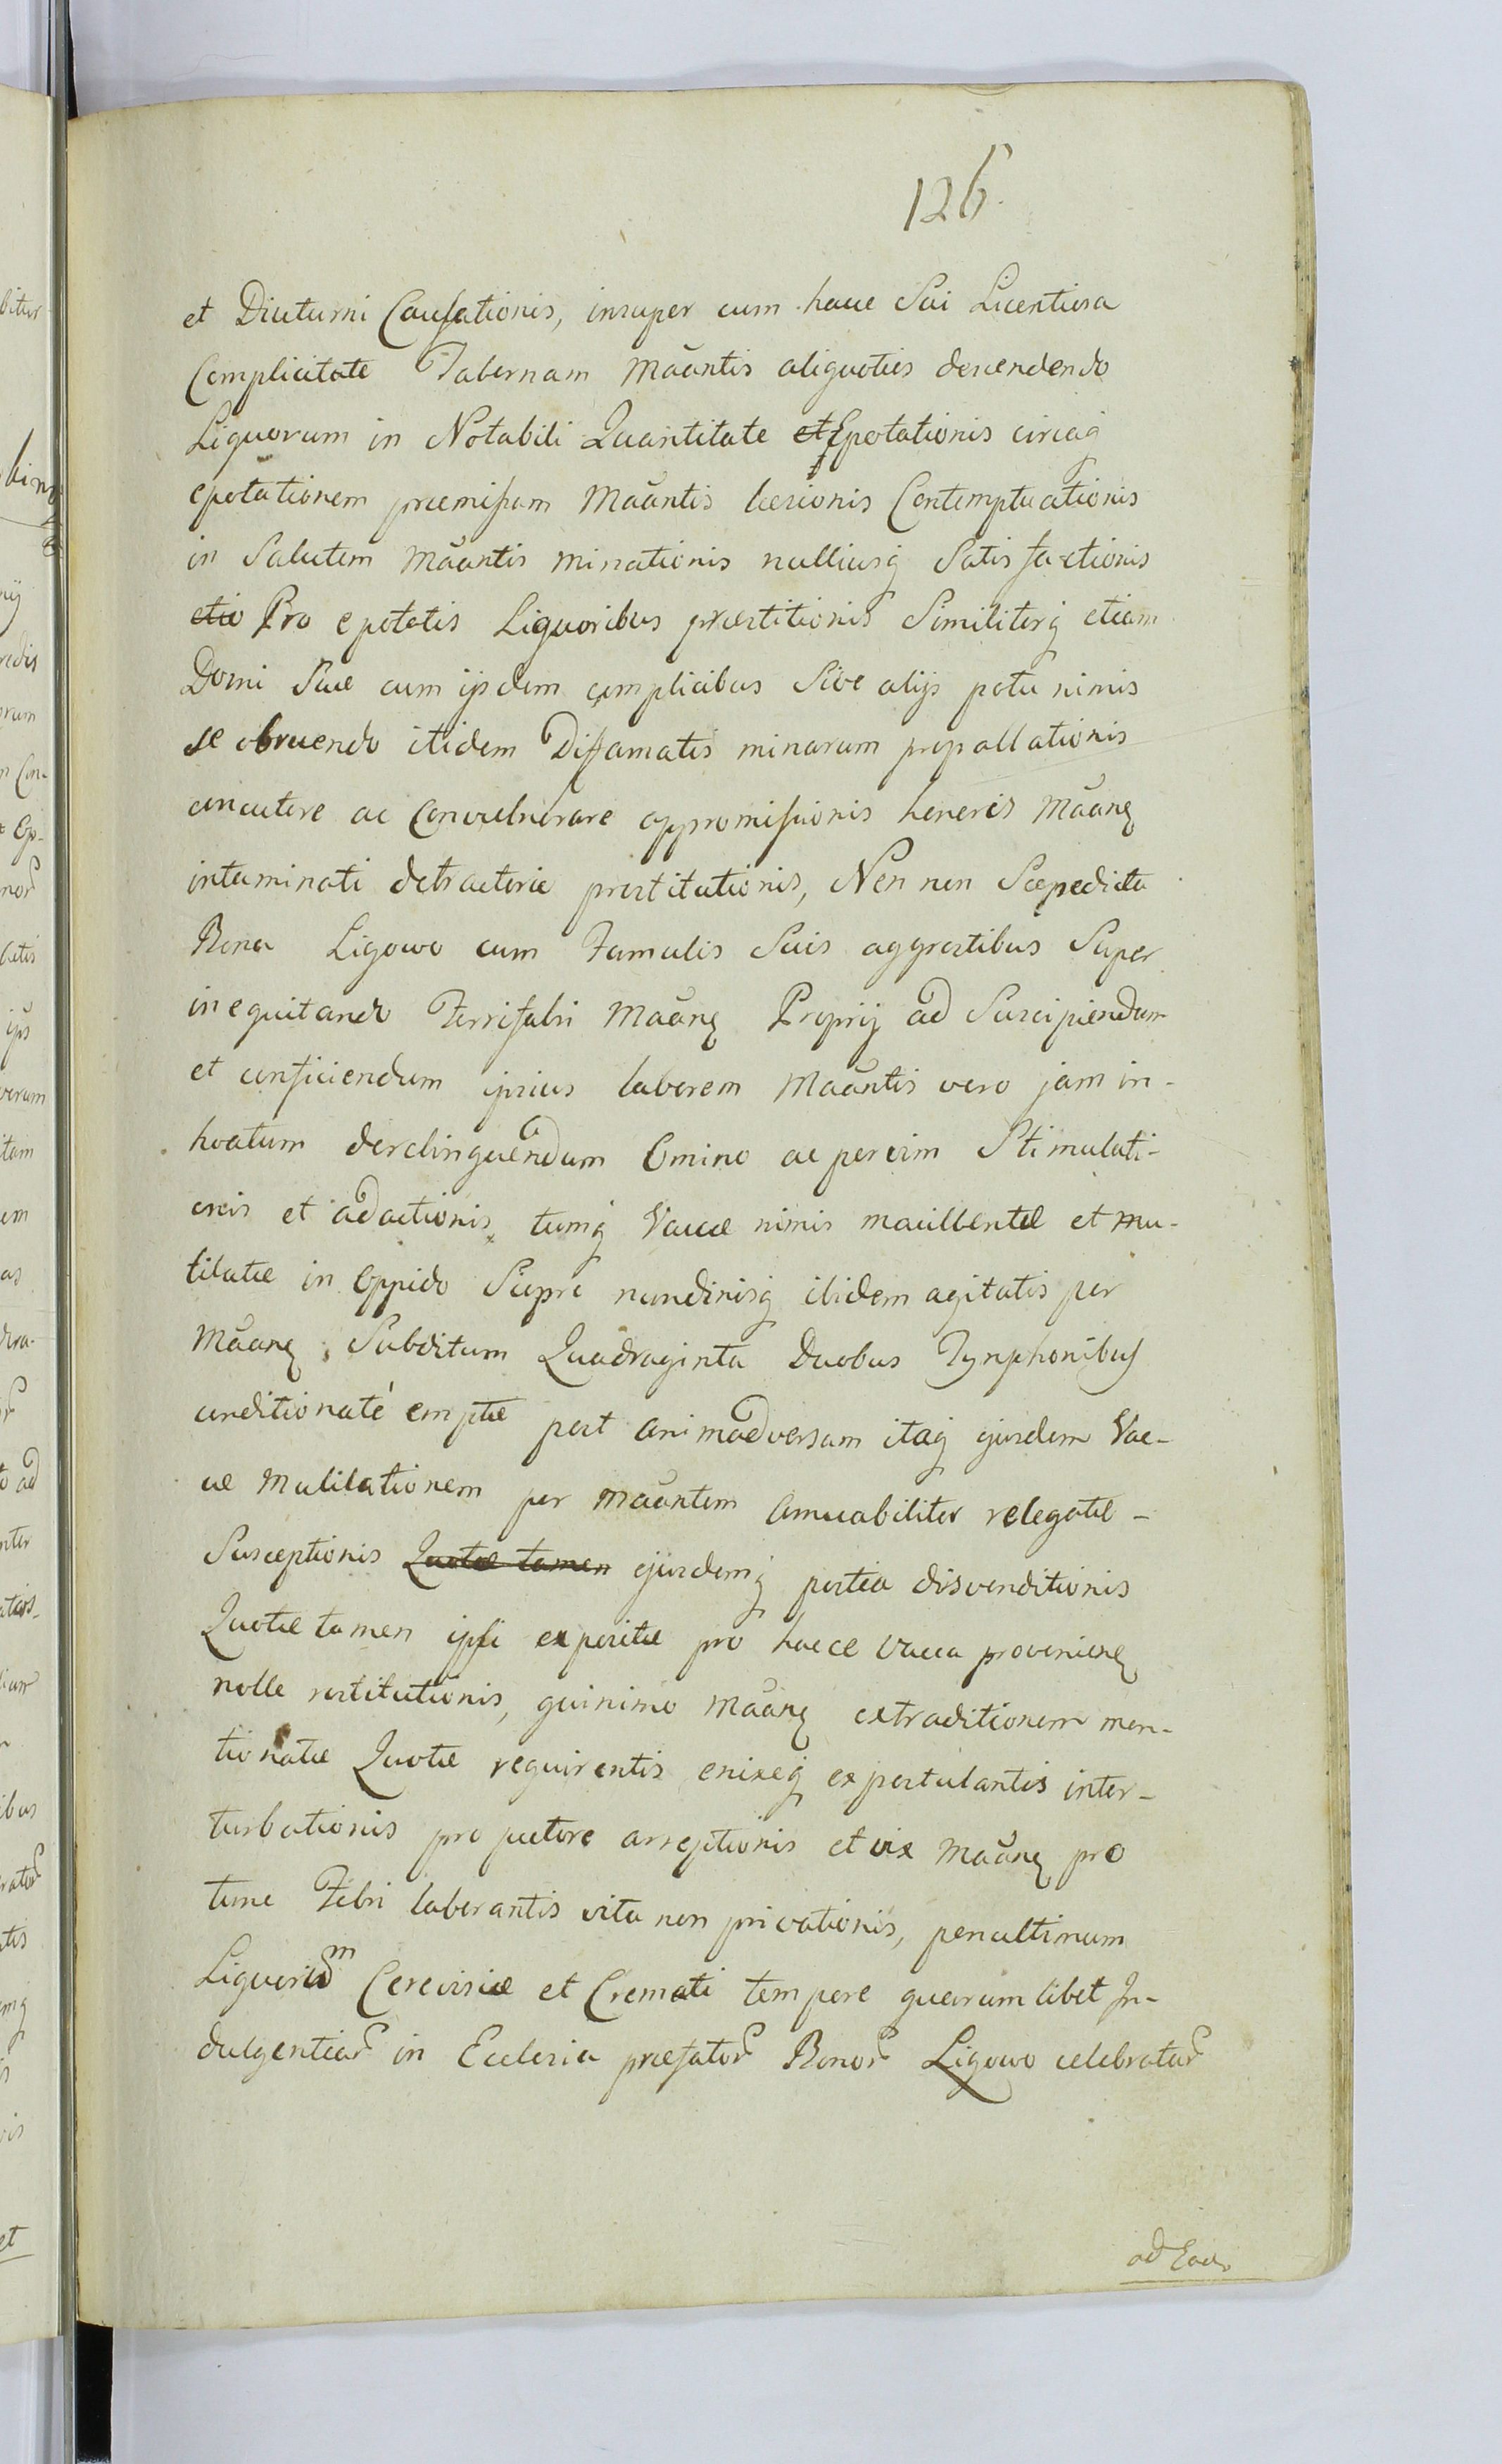 126.
et Diuturni Causationis, insuper cum hacce Sui Licentiosa
Complicitate Tabernam Māantis aliquoties descendendo
Liquorum in Notabili Quantitate et Epotationis circaq
epotationem præmissam Māantis læsionis Contemptuationis
in Salutem Māantis minationis nulliusq Satisfactionis
Pro epotatis Liquoribus præstitionis Similiterq etiam
Domi Suæ cum ijsdem complicibus Sive alijs potu nimis
se obruendo itidem Diffamatis minarum propallationis
concutere ac Convulnerare appromissionis honoris Māanq
intaminati detractoriæ prostitutionis, Nen non Sæpedicta
Bona Ligowo cum Famulis Suis aggrestibus Super
inequitando Ferrifabri Māanq Proprij ad Suscipiendum
et conficiendum ipsius laborem Māantis vero jam in-
hoatum derelinquendum Omino ac pervim Stimulati-
onis et adactionis, tumq Vaccæ nimis macillentæ et mu-
tilatæ in Oppido Sicpre nundinisq ibidem agitatis per
Māanq Subditum Quadraginta Duobus Tynphonibus
conditionaté emptæ post animadversam itaq ejusdem Vac-
cæ Mutilationem per māantem amicabiliter relegatæ -
Susceptionis Quotæ tamen ejusdemq postea disvenditionis
Quotæ tamen ipsi expositæ pro hacce vacca provenienq
nolle restitutionis, quinimo Māanq extraditionem men-
tionatæ Quotæ requirentis enixeq expostulantis inter-
turbationis pro pectore arreptionis et vix Māanq pro
tunc Febri laborantis vita non privationis, penultimum
Liquorum Cerevisiæ et Cremati tempore quarumlibet In-
dulgentiar in Ecclesia præfator Bonor Ligowo celebratar
ad Ead.